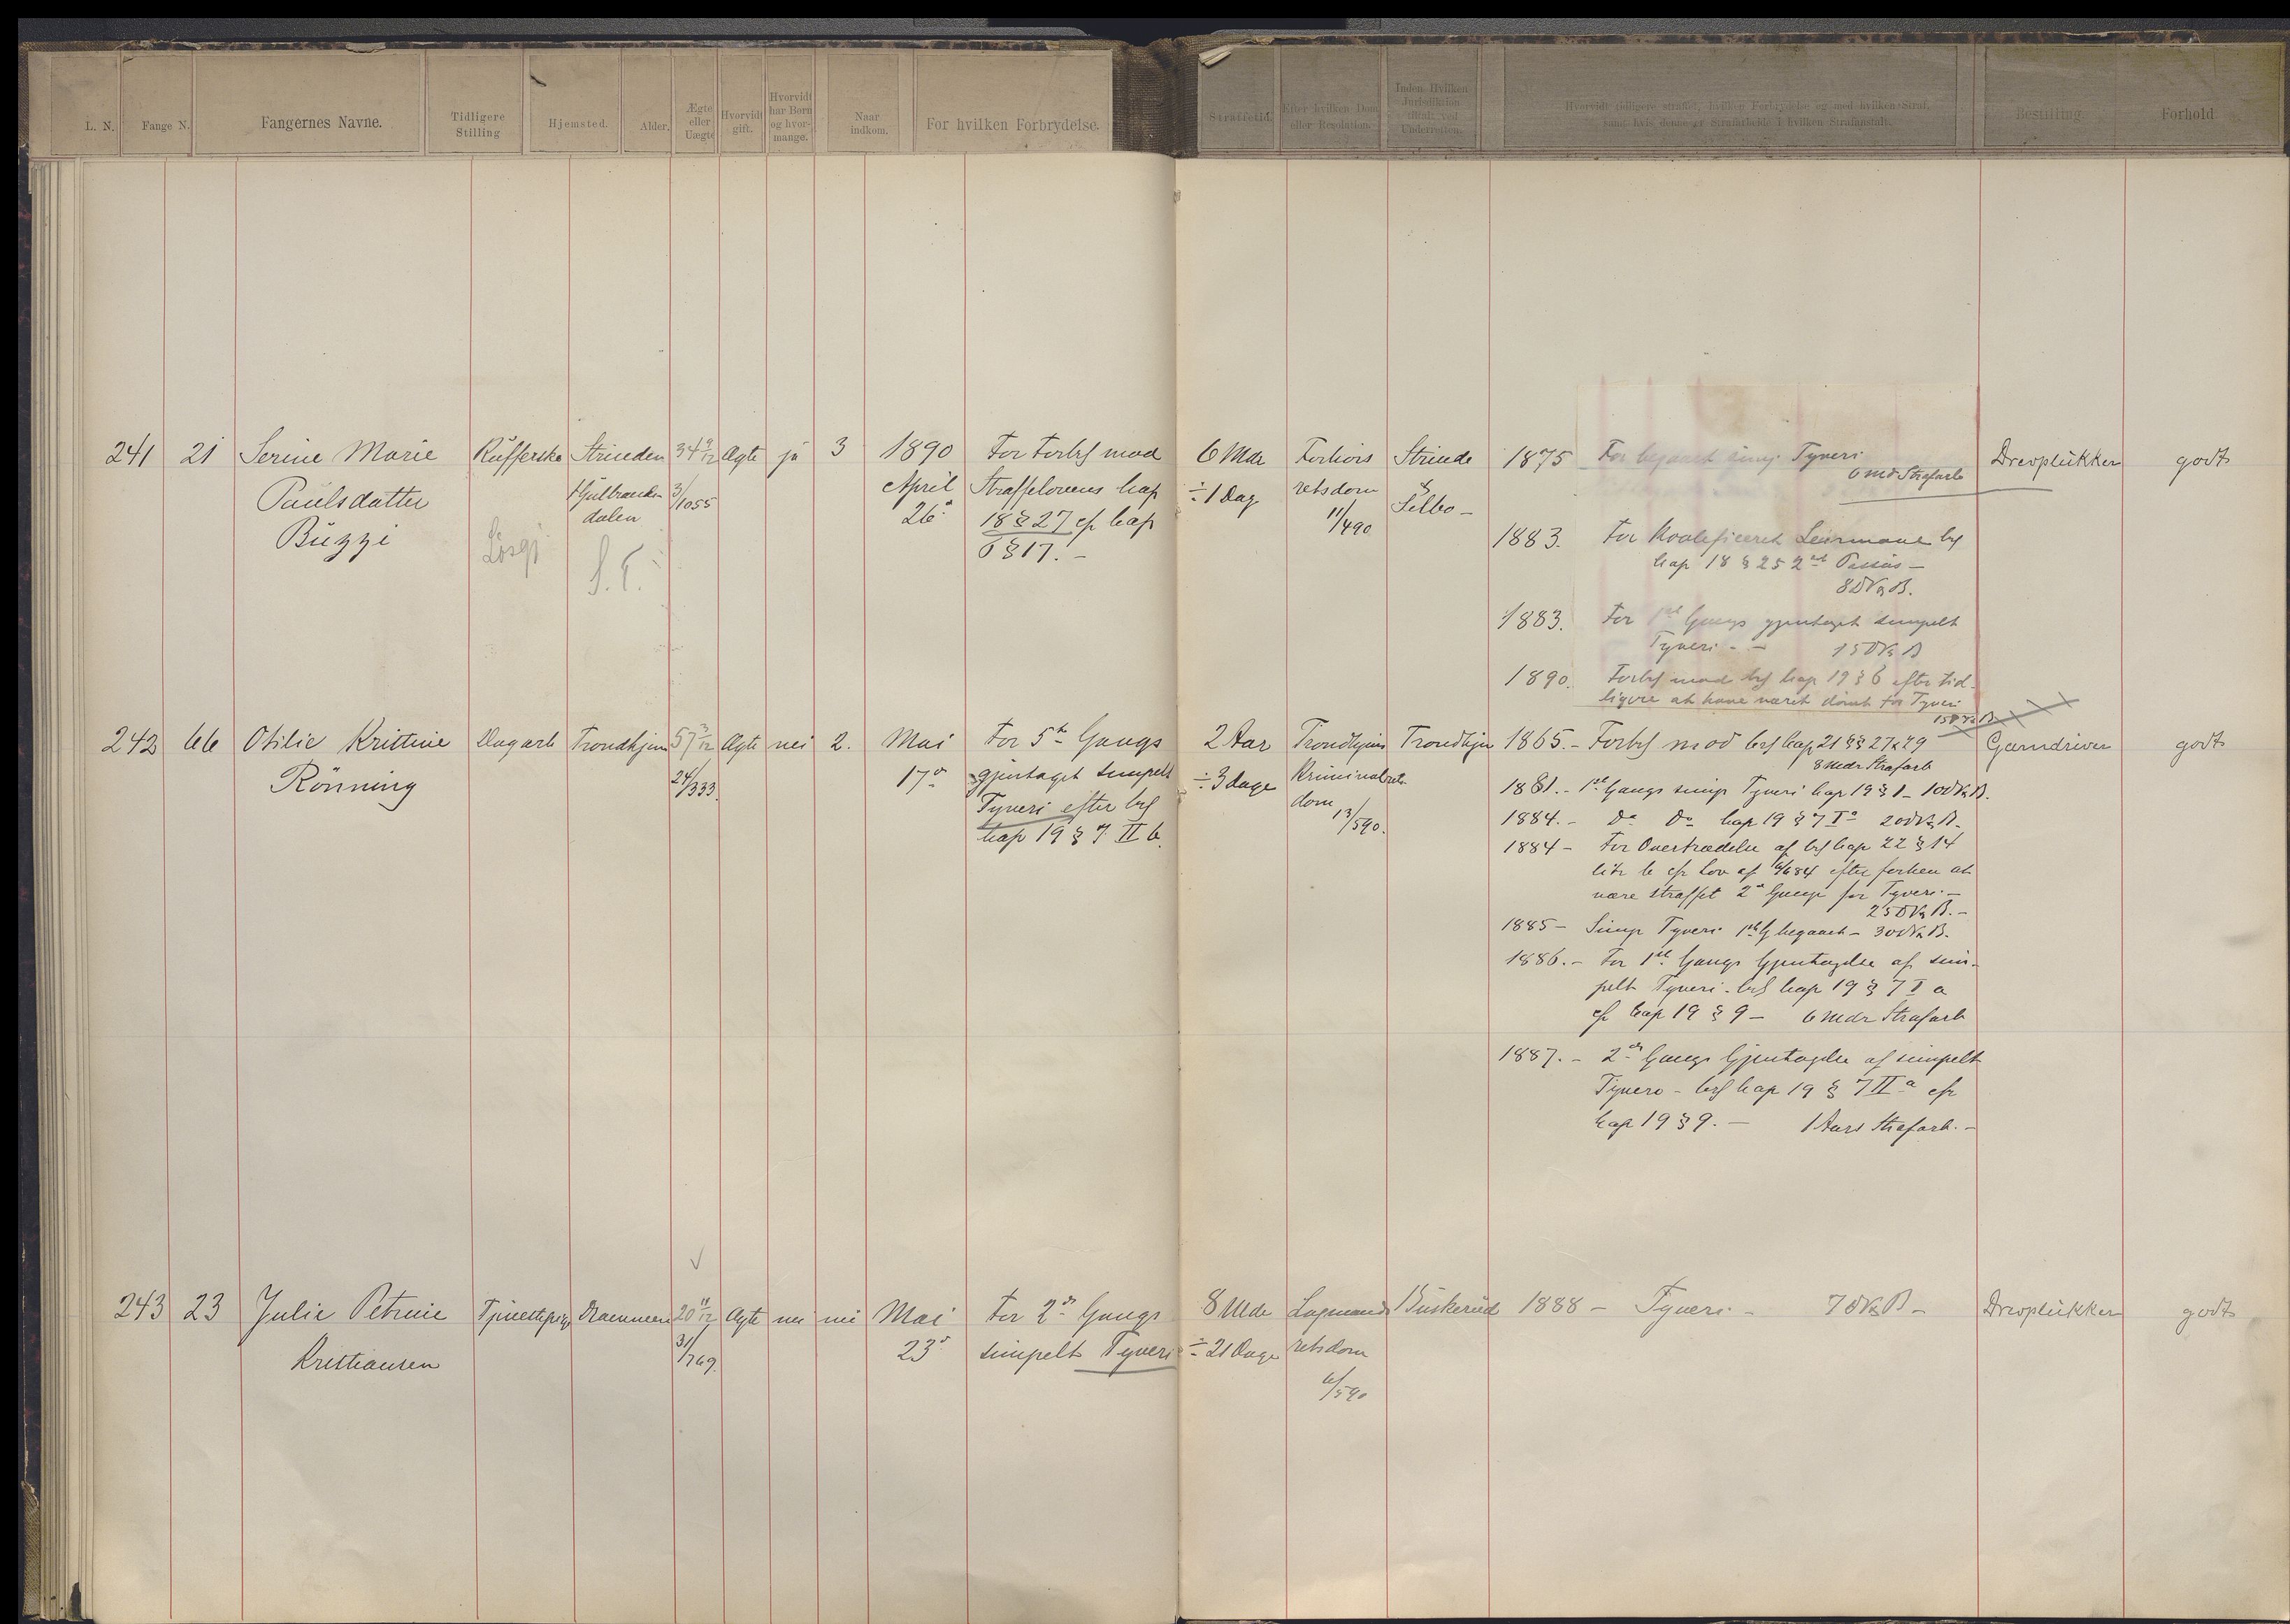 L. N.
Fange N.
Fangernes Navne.
Tidligere
Stilling
Hjemsted.
Alder.
Ægte
eller
Uægte
Hvorvidt
gift.
Hvorvidt
har Børn
og hvor-
mange.
Naar
indkom.
For hvilken Forbrydelse.
Straffetid.
Efter hvilken Dom
eller Resolution.
Inden Hvilken
Jurisdiktion
tiltalt ved
Underretten.
Hvorvidt tidligere straffet, hvilken Forbrydelse og med hvilken Straf,
samt hvis denne er Strafarbeide i hvilken Strafanstalt.
Bestilling.
Forhold
241
21
Serine Marie
Paulsdatter
Buzzi
Rufferske
Løsgj
Strinden
dalen
S. T.
34 9/12
3/1055
Ægte
ja
3
1890
April
26
For Forbr mod
Straffelovens Kap
18 § 27 cfr Kap
6 § 17. -
6 Mdr
÷ 1 Dag
Forhørs
retsdom
11/4 90
Strinde
&
Selbo -
1875
For begaaet simp. Tyveri
6 Mdr Strafarb
1883.
For Kvalificeret Leiermaal
Kap 18 § 25 2det Passus -
8 D V & B.
1883.
For 1ste Gangs gjentaget simpelt
Tyveri - -
15 D V & B
1890.
Forbr mod Kap 19 § 6 efter tid-
ligere at have været dømt for Tyveri
15 D V & B
Drevplukker
godt
242
66
Otilie Kristine
Rönning
Dagarb
Trondhjem
57 3/12
24/333.
Ægte
nei
2.
Mai
17
For 5te Gangs
gjentaget simpelt
Tyveri efter
Kap 19 § 7 II b.
2 Aar
÷ 3 dage
Trondhjems
Kriminalrets
dom
13/5 90.
Trondhjem
1865. - Forbr mod Kap 21 §§ 27 & 29
8 Mdr Strafarb
1881. - 1ste Gangs simp Tyveri Kap 19 § 1 - 10 D V & B.
1884. - Do Do Kap 19 § 7 I a 20 D V & B.
1884 - For Overtrædelse af Kap 22 § 14
litr b cfr Lov af 84 efter forhen at
være straffet 2 Gange for Tyveri. -
25 D V & B. -
1885 - Simp Tyveri 1ste G begaaet - 30 D V & B.
1886. - For 1ste Gangs Gjentagelse af sim-
pelt Tyveri - Kap 19 § 7 I a
cfr Kap 19 § 9 - 6 Mdr Strafarb
1887. - 2den Gangs Gjentagelse af simpelt
Tyveri - Kap 19 § 7 II a cfr
Kap 19 § 9. - 1 Aars Strafarb. -
Garndriver
godt
243
23
Julie Petrine
Kristiansen
Tjenestepige
Drammen
20 11/12
31/769.
Ægte
nei
nei
Mai
23
For 2den Gangs
simpelt Tyveri
8 Mdr
÷ 21 Dage
Lagmands
retsdom
6/5 90
Buskerud
1888 - Tyveri - 7 D V & B -
Drevplukker
godt